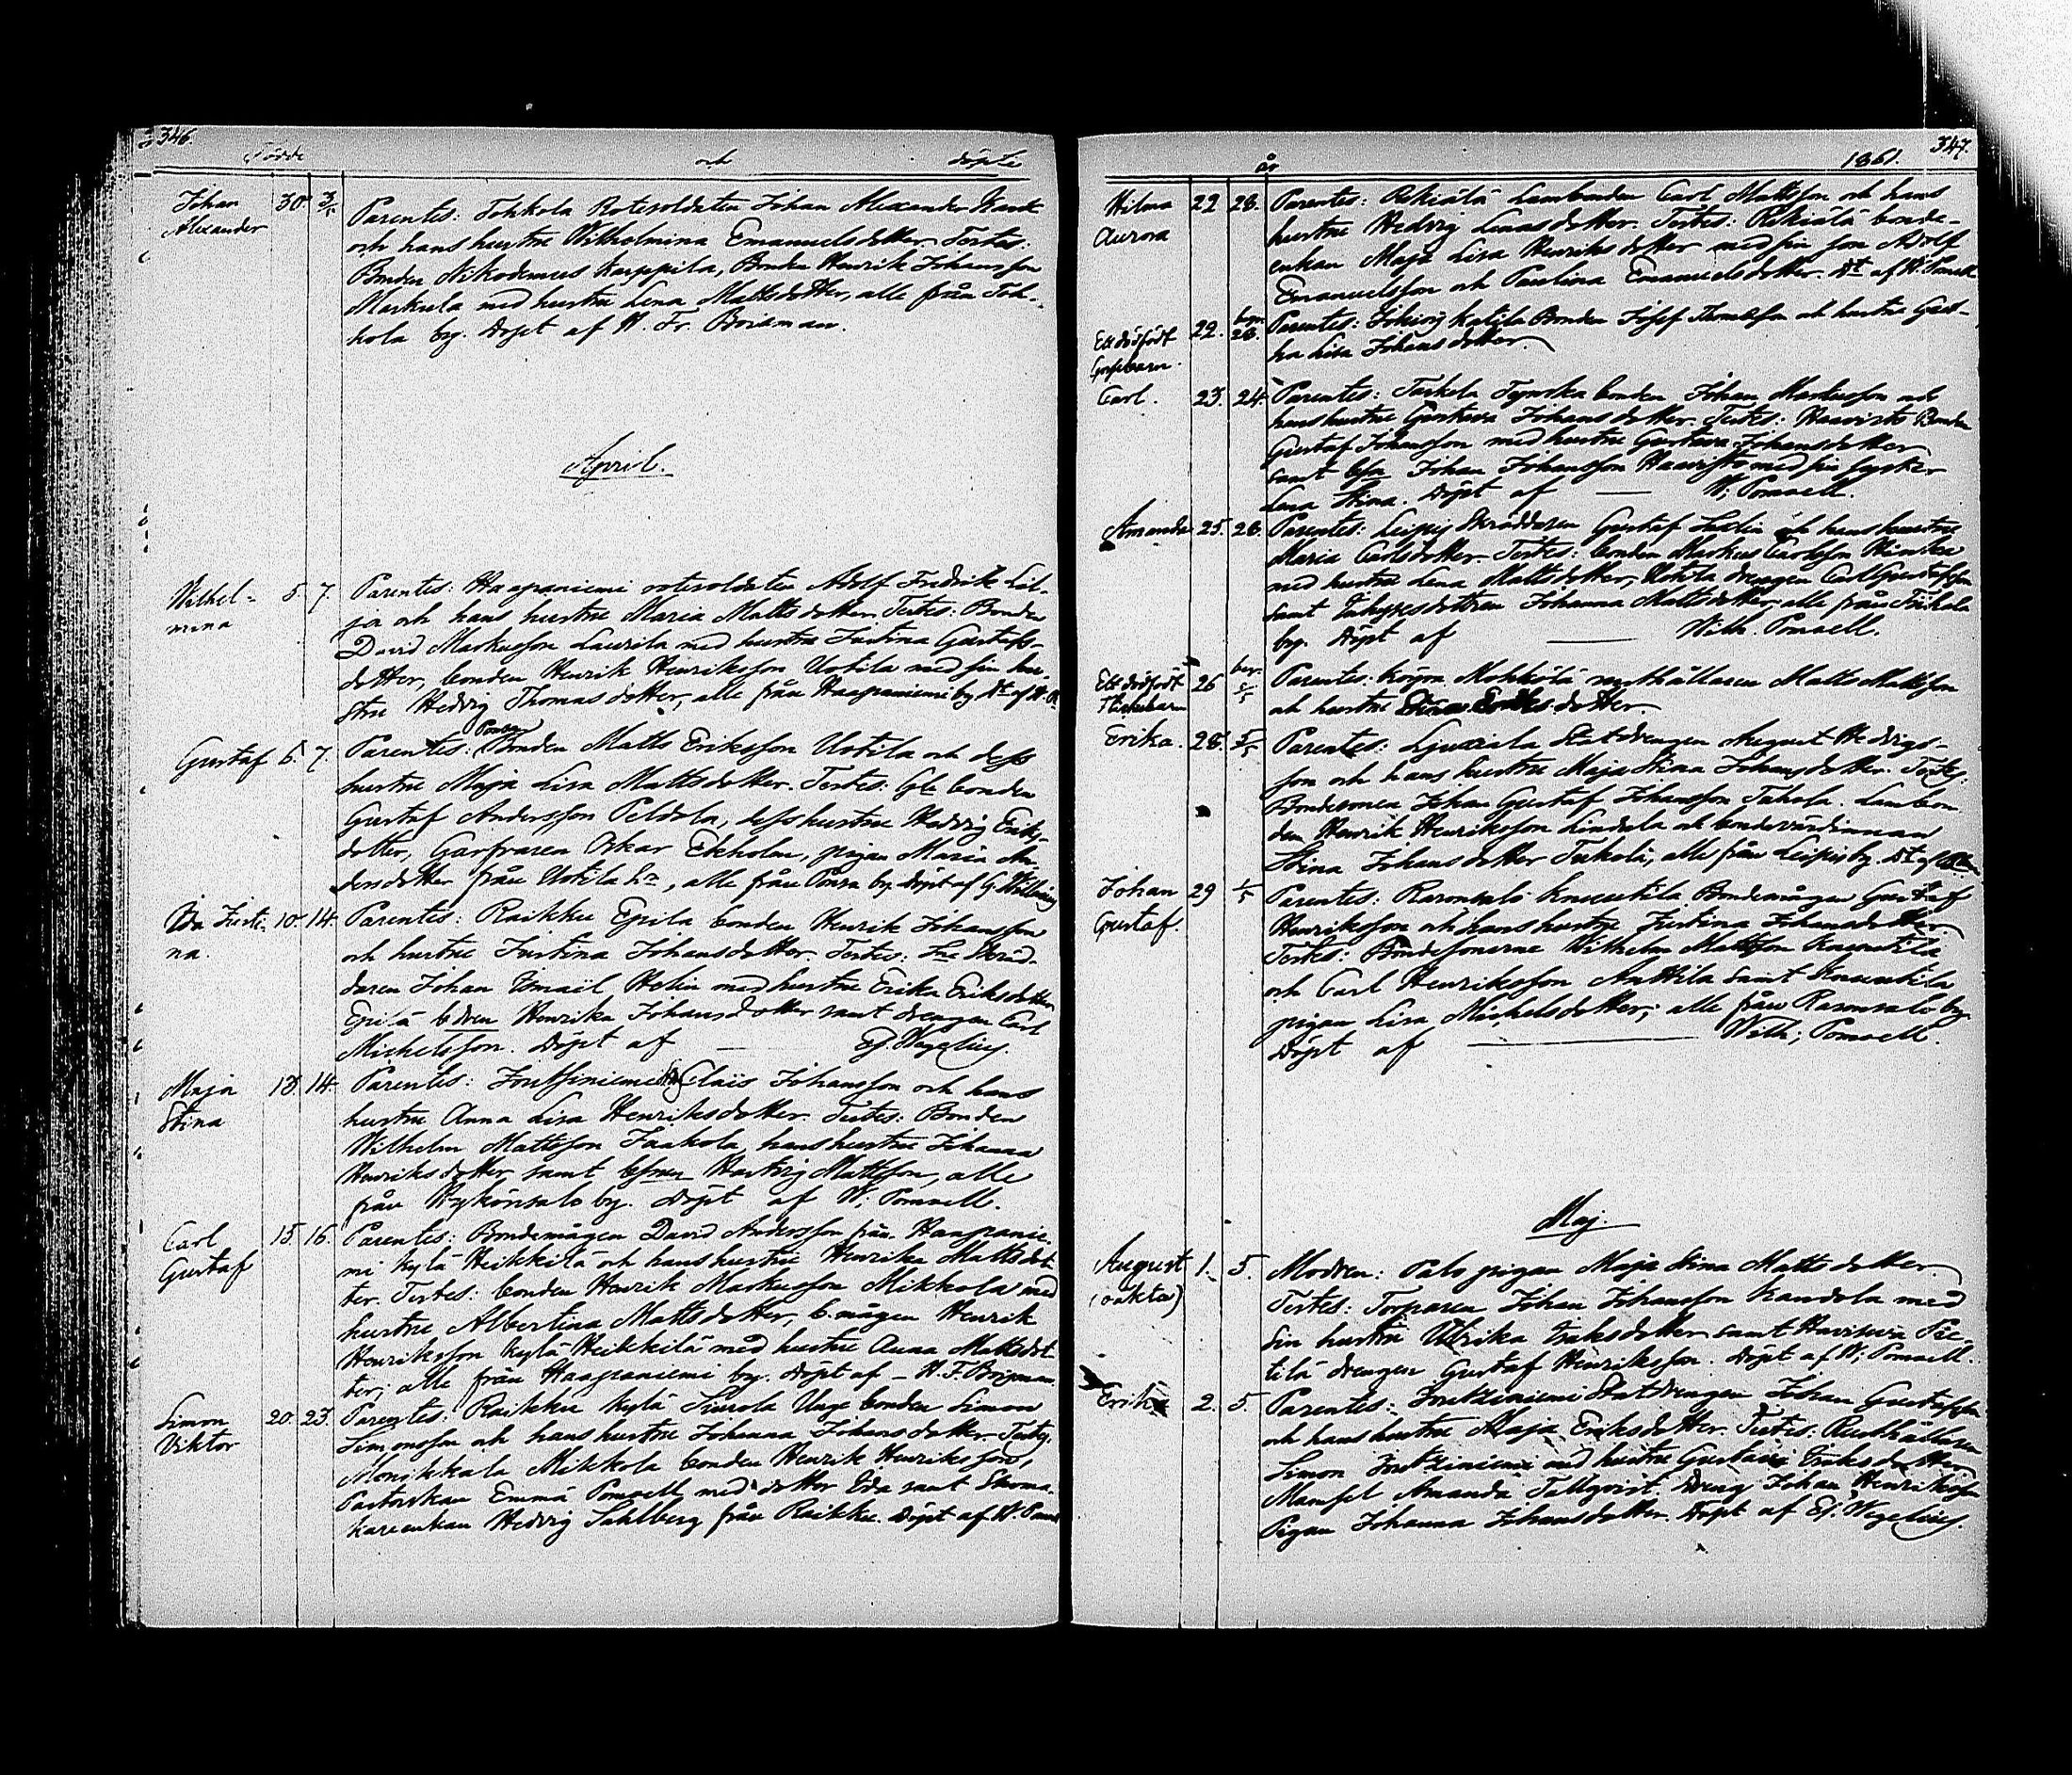 346.
Födde och döpte
Johan 30. 3/5 Parentes: Tohkola Rotesoldaten Johan Alexander
Alexander och hans hustru Wilhelmina Emanuelsdotter. Testes:
Bonden Nikodemus Karppila, Bonden Henrik Johansson
Markula med hustru Lena Mattsdotter, alle från Toh-
kola by. Döpt af W. Fr. Boisman.
April.
Wilhel- 5. 7. Parentes: Haapaniemi rotesoldaten Adolf Fredrik Lil-
mina ja och hans hustru Maria Mattsdotter. Testes: Bonden
David Markusson Laurila med hustru Justina Gustafs-
dotter, bonden Henrik Henriksson Uotila med sin hu-
stru Hedvig Thomasdotter, alle från Haapaniemi by. Dt af W. P.
Gustaf 6. 7. Parentes: Ponsa Bonden Matts Eriksson Uotila och dess
hustru Maja Lisa Mattsdotter. Testes: Gle bonden
Gustaf Andersson Peldola, dess hustru Hedvig Eriks-
dotter, Garfvaren Oskar Ekholm, pigan Maria An-
dersdotter från Uotila hn, alle från Ponsa by. Döpt af G.
Ida Justi- 10. 14. Parentes: Raikku Epila bonden Henrik Johansson
na. och hustru Justina Johansdotter. Testes: Skräd-
daren Johan Ismail Helin med hustru Erika Eriksdotter
Epilä bdren Henrika Johansdotter samt drengen Carl
Michelsson. Döpt af — Ej. Wegelius.
Maja 13. 14. Parentes: Joutsiniemi Claes Johansson och hans
Stina hustru Anna Lisa Henriksdotter. Testes: Bonden
Wilhelm Mattsson Jaakola, hans hustru Johanna
Henriksdotter, samt bsonen Hartvig Mattsson, alle
från Hykönsalo by. Döpt af W. Pomoell.
Carl 15. 16. Parentes: Bondemågen David Andersson från Haapanie-
Gustaf mi Kylä Heikkilä och hans hustru Henrika Mattsdot-
ter. Testes: bonden Henrik Markusson Mikkola med
hustru Albertina Mattsdotter, b. mågen Henrik
Henriksson Kylä Heikkilä med hustru Anna Mattsdot-
ter; alle från Haapaniemi by. Döpt af — W. F. Boisman.
Simon 20. 23. Parentes: Raikku Kylä Simola Unge bonden Simon
Viktor Simonsson och hans hustru Johanna Johansdotter. Testes:
Monikkala Mikkola bonden Henrik Henriksson,
Pastorskan Emma Pomoell med dotter Ida samt Skoma-
kareenkan Hedvig Sahlberg från Raikku. Döpt af W. Pomoell
år 1861. 347.
Hilma 22 28. Parentes: Pekiälä Lambonden Carl Mattsson och hans
Aurora hustru Hedvig Lucasdotter. Testes: Pekiälä bonde-
enkan Maja Lisa Henriksdotter med sin son Adolf
Emanuelsson och Paulina Emanuelsdotter. Dt af W. Pomoell
Ett dödfödt 22. begr. 28. Parentes: Katila Bonden Josef Thomasson och hustru Gus-
Gossebarn. ha Lisa Johansdotter.
Carl. 23. 24. Parentes: Tarkela Tynska bonden Johan Markusson och
hans hustru Gustava Johansdotter. Testes: Haavisto Bonden
Gustaf Johansson med hustru Gustava Johansdotter
samt bsn Johan Johansson Haavisto med sin syster
Lena Stina. Döpt af — W. Pomoell.
Amanda 25. 28. Parentes: Leipis Skräddaren Gustaf och hans hustru
Maria Carlsdotter. Testes: bonden Markus Carlsson
med hustru Lena Mattsdotter, Uotila drengen Carl Gustafsson
samt Johanna Mattsdotter, alle från
by. Döpt af — Wilh. Pomoell.
Ett dödfödt 26 begr. 5/5 Parentes: Mokkölä rusthållaren Matts Mattsson
Flickebarn och hustru
Erika. 28. 5/5 Parentes: Ljuxiala Statdrengen August Hedvigs-
son och hans hustru Maja Stina Johansdotter. Testes:
Bondesonen Johan Gustaf Johansson Tahola. Lambon-
den Henrik Henriksson Lindula och bondevärdinnan
Stina Johansdotter Tukoli, alle från Leipis by. Dt af
Johan 29 1/5 Parentes: Raronsalo Knuutila Bondemågen Gustaf
Gustaf. Henriksson och hans hustru Justina Johansdotter
Testes: Bondesönerne Wilhelm Mattsson Knuutila
och Carl Henriksson Anttila samt Knuutila
pigan Lisa Michelsdotter; alle från Raronsalo by.
Döpt af — Wilh; Pomoell.
Maj.
August 1. 5. Modren: Palo pigan Maja Stina Mattsdotter.
(oäkta) Testes: Torparen Johan Johansson Kandola med
sin hustru Ulrika Isaksdotter samt Havisevä Pie-
tilä drengen Gustaf Henriksson. Döpt af W; Pomoell.
Erika 2. 5. Parentes: Joutsiniemi Statdrengen Johan Gustafsson
och hans hustru Maja Eriksdotter. Testes: Rusthållaren
Simon Joutsiniemi med hustru Gustava Eriksdotter
Mamsel Amanda Tallqvist. Dreng Johan Henriksson
Pigan Johanna Johansdotter. Döpt af Ej. Wegelius.